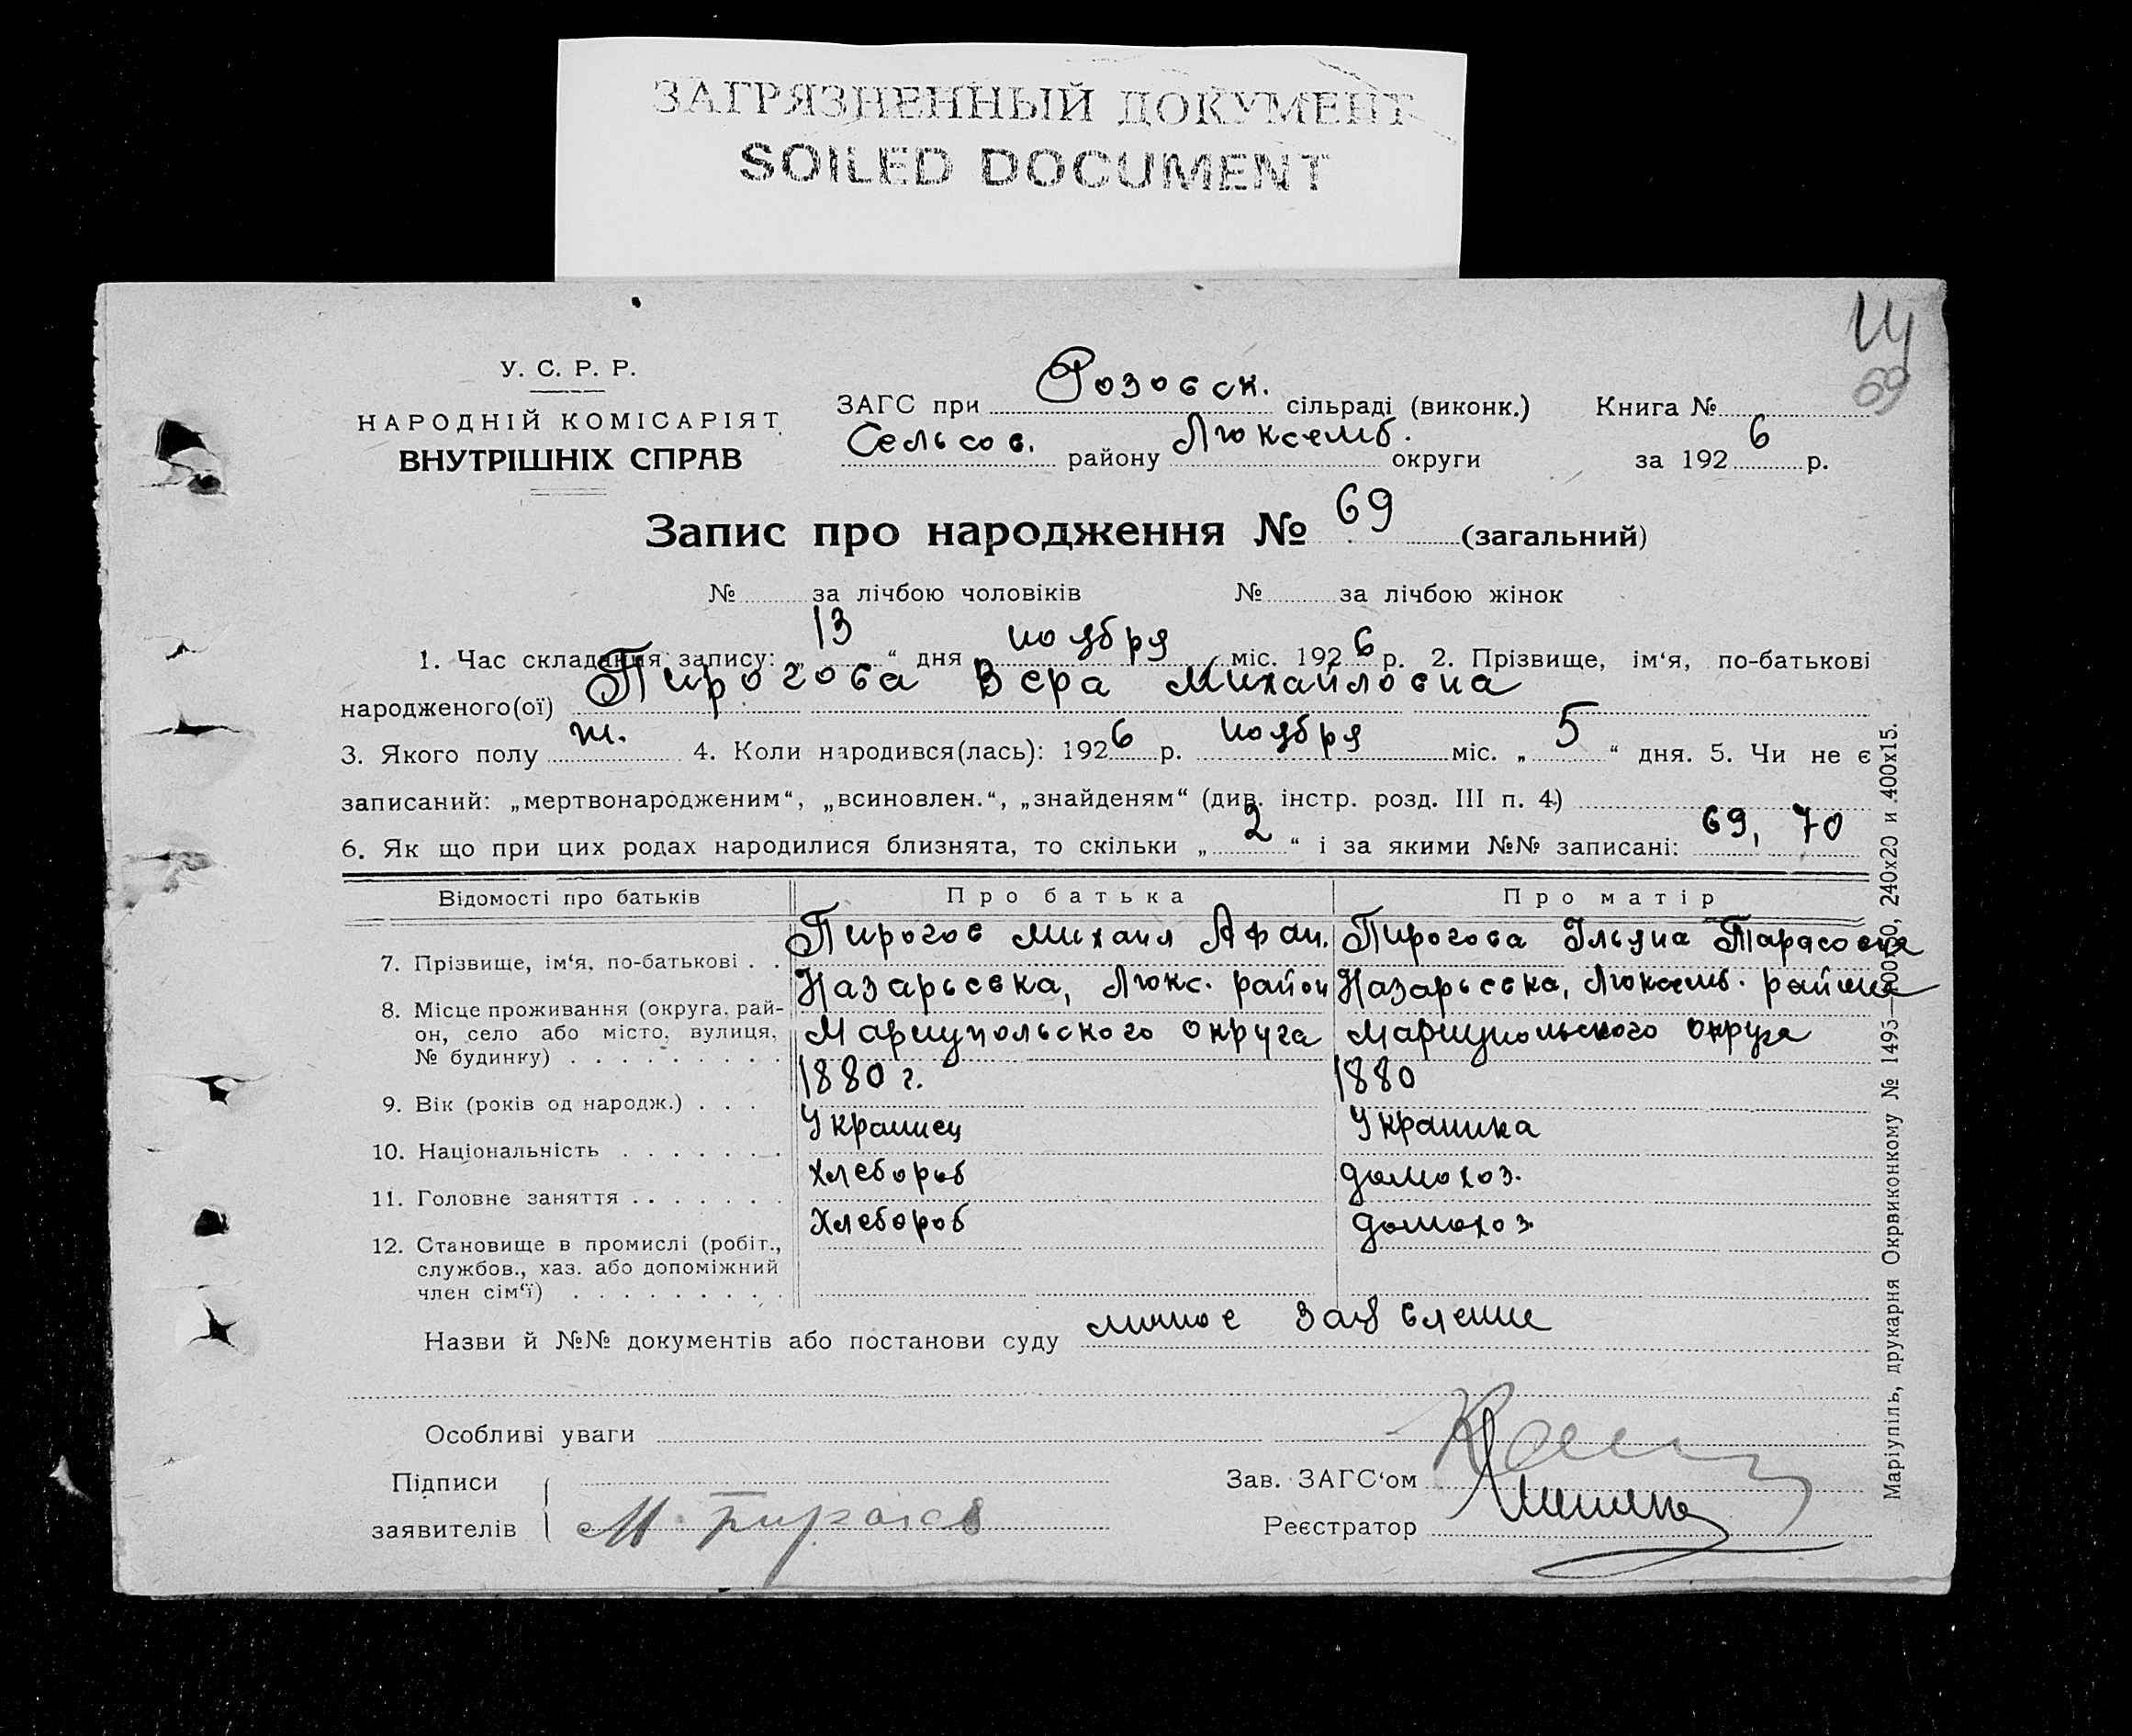 ЗАГРЯЗНЕННЫЙ ДОКУМЕНТ
SOILED DOCUMENT
69
У. С. Р. Р.
НАРОДНІЙ КОМІСАРІЯТ
ВНУТРІШНІХ СПРАВ
ЗАГС при Розовск. сільраді (виконк.) Книга №
Сельсов. району Люксемб. округи за 1926 р.
Запис про народження № 69 (загальний)
№ за лічбою чоловіків № за лічбою жінок
1. Час складання запису: „13“ дня ноября міс. 1926 р. 2. Прізвище, ім‘я, по-батькові
народженого(ої) Пирогова Вера Михайловна
3. Якого полу ж. 4. Коли народився(лась): 1926 р. ноября міс. „5“ дня. 5. Чи не є
записаний: „мертвонародженим“, „всиновлен.“, „знайденям“ (див. інстр. розд. III п. 4)
6. Як що при цих родах народилися близнята, то скільки „2“ і за якими №№ записані: 69, 70
Відомості про батьків Про батька Про матір
7. Прізвище, ім‘я, по-батькові . . Пирогов Михаил Афан. Пирогова Ульяна Тарасовна
8. Місце проживання (округа, рай- Назарьевка, Люкс. район Назарьевка, Люксемб. района
он, село або місто, вулиця, Мариупольского округа Мариупольского округа
№ будинку) . . . . . . . . .
9. Вік (років од народж.) . . . 1880 г. 1880
10. Національність . . . . . . . Украинец Украинка
11. Головне заняття . . . . . . . Хлебороб домохоз.
12. Становище в промислі (робіт., Хлебороб домохоз.
службов., хаз. або допоміжний
член сім‘ї) . . . . . . . . .
Назви й №№ документів або постанови суду личное заявление
Особливі уваги
Підписи
заявителів М. Пирогов
Зав. ЗАГС‘ом
Реєстратор
Маріупіль, друкарня Окрвиконкому № 1495—240х20 и 400х15.